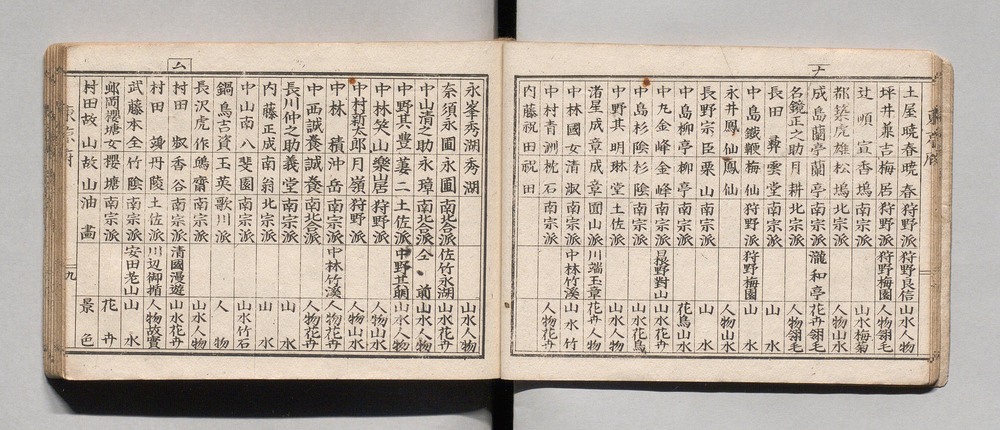 土屋暁春 暁春 狩野派 狩野良信 山水人物
坪井兼吉 梅居 狩野派 狩野梅園 人物翎毛
辻順宣 香塢 南宗派 山水梅菊
都築虎雄 松塢 北宗派 人物山水
成島蘭亭 蘭亭 南宗派 瀧和亭 花卉翎毛
名鏡正之助 月耕 北宗派 人物翎毛
長田彜 雲堂 南宗派 山水
中島鐵鞭 梅仙 狩野派 狩野梅園 山水
永井鳳仙 鳳仙 人物山水
長野宗臣 栗山 南宗派 山水
中島柳亭 柳亭 南宗派 花鳥山水
中九金峰 金峰 南宗派 野對山 山水花卉
中島杉陰 杉陰 南宗派 山水花鳥
中野其明 琳堂 土佐派 山水人物
渚星成章 成章 圓山派 川端玉章 花卉人物
中林國女 清淑 南宗派 中林竹溪 山水竹
中村青洲 枕石 南宗派 人物花卉
内藤祝田 祝田
ナ
永峯秀湖 秀湖 山水人物
奈須永圃 永圃 南北合派 佐竹永湖
中山清之助 永璋 南北合派 仝前 山水人物
中野其豊 二 土佐派 中野其明 山水人物
中林笑山 樂山居 狩野派 人物山水
中村新太郎 月嶺 狩野派 人物山水
中林積 沖岳 南宗派 中林竹溪 人物花卉
中西誠養 誠養 南北合派 人物花卉
長川仲之助 義堂 南宗派 山水
内藤正成 南翁 北宗派 山水
中山南八 斐園 南宗派 山水竹石
鍋島吉資 玉英 歌川派 人物
長沢虎作 鳴齋 南宗派 山水人物
ム
村田淑 香谷 南宗派 清國漫遊 山水花卉
村田翊丹 丹陵 土佐派 川辺御楯 人物故實
武藤本全 竹陰 南宗派 安田老山 山水
郷岡櫻塘女 櫻塘 南宗派 花卉
村田故山 故山 油畫 景色
九